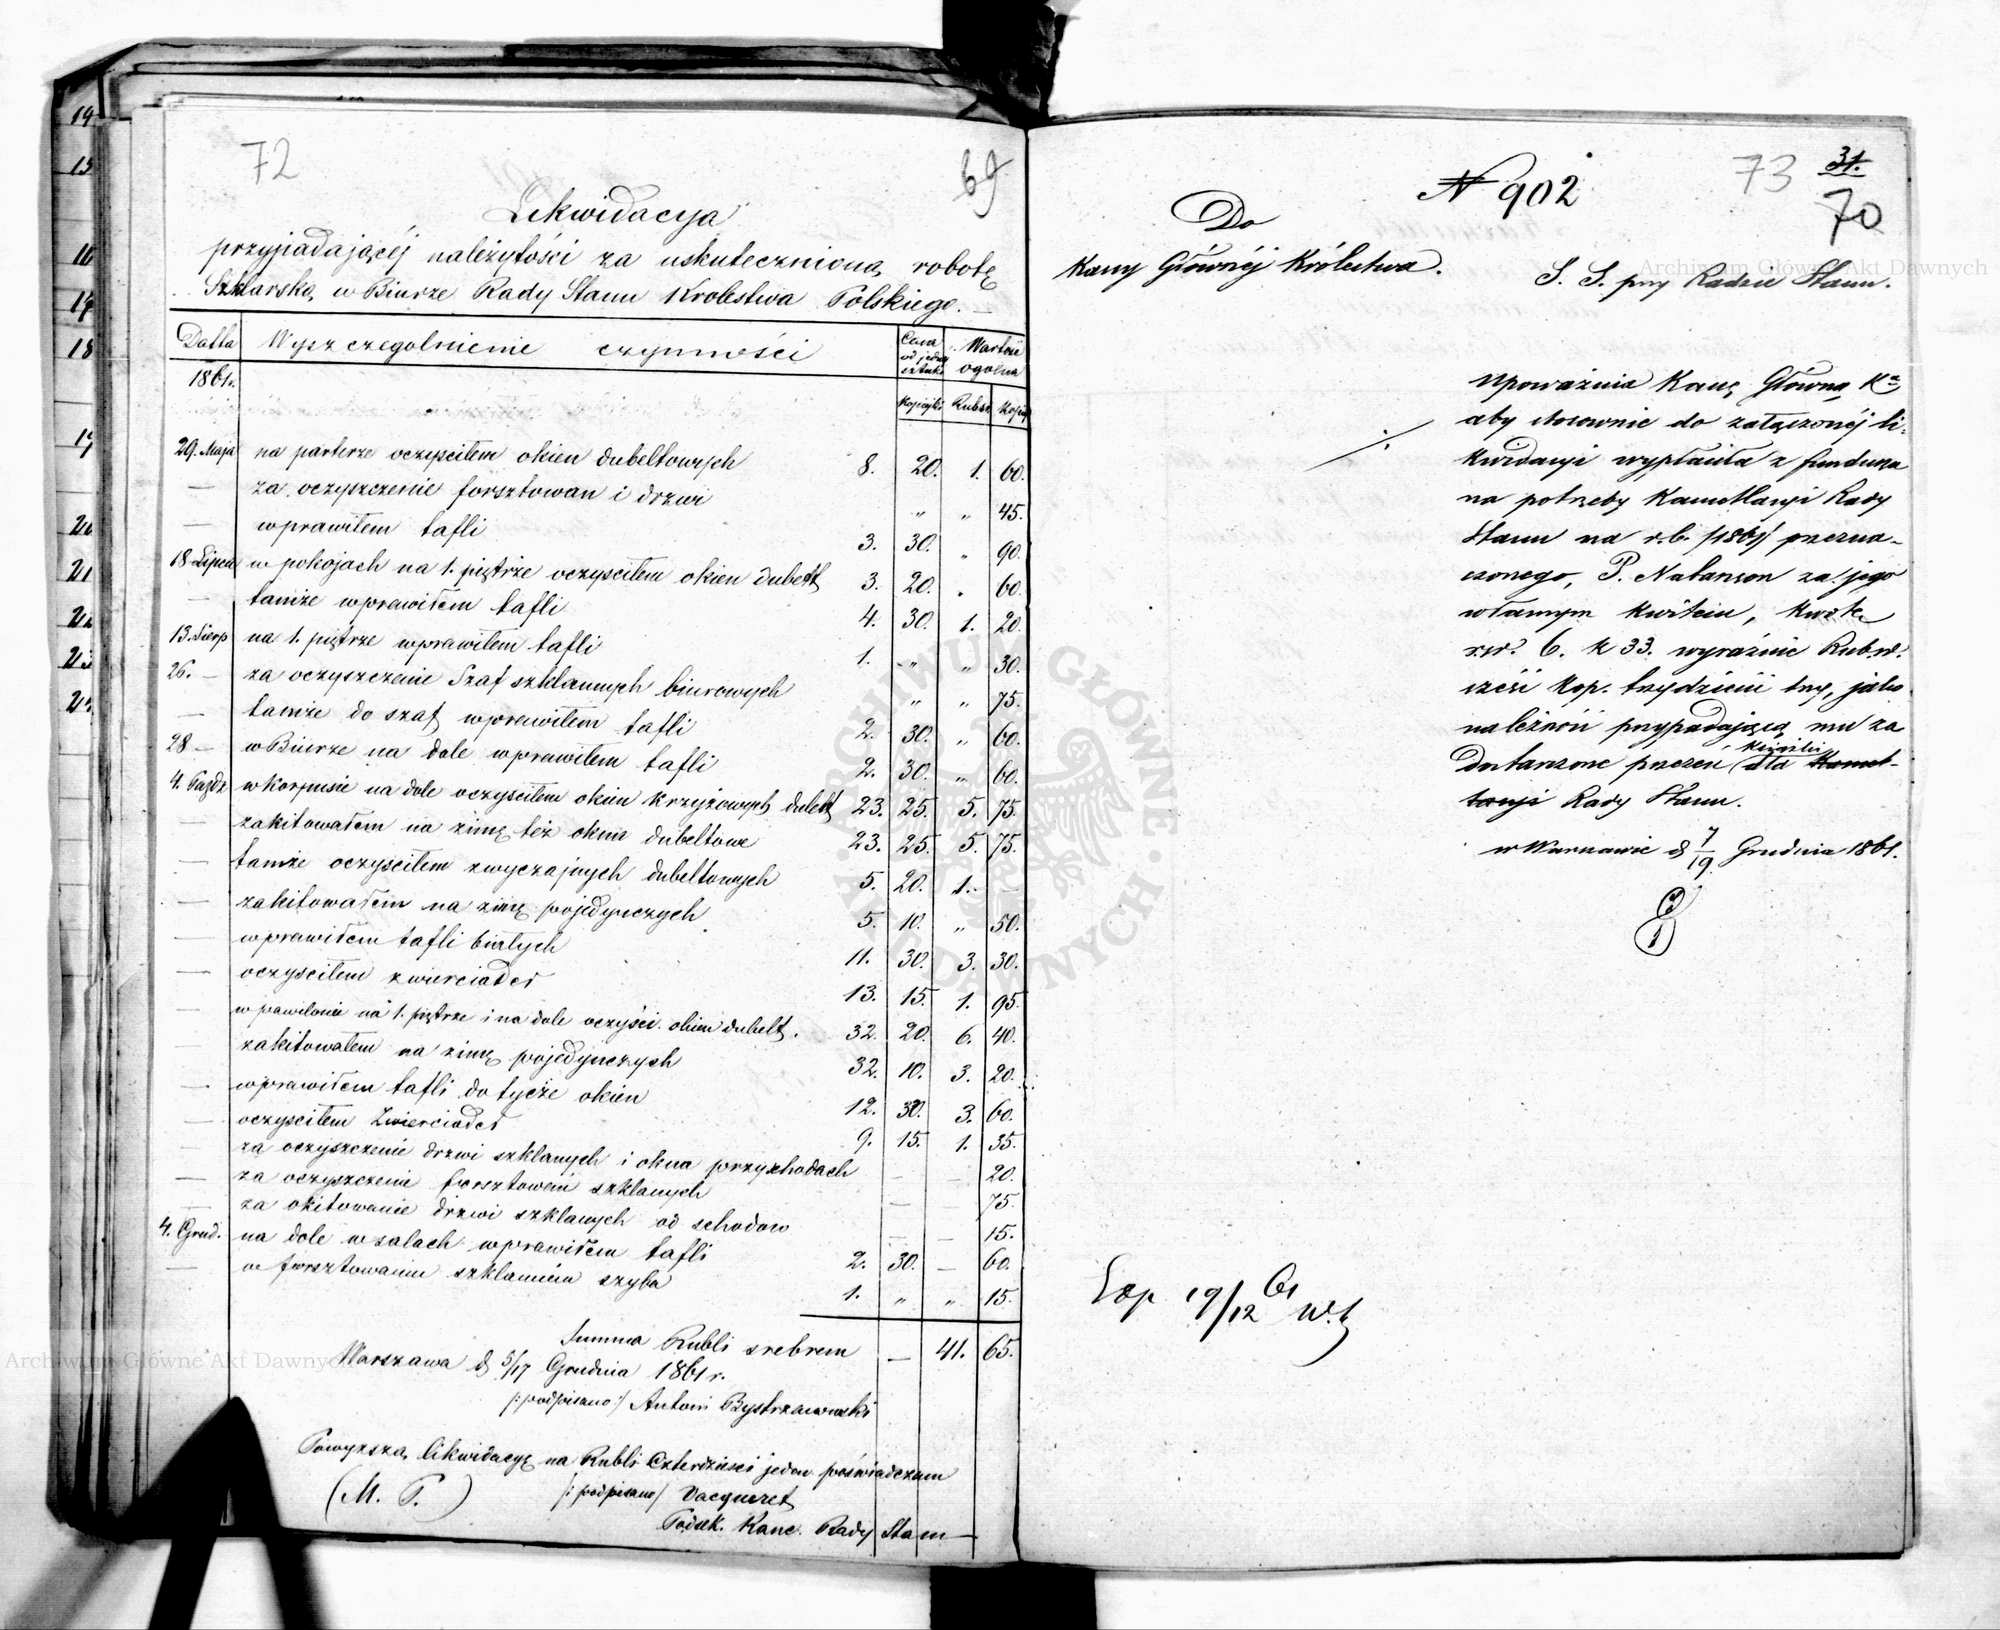 72
69
Likwidacyja
przypadającéj należytości za uskutecznioną robotę
Szklarską w Biurze Rady Stanu Królestwa Polskiego.
Datta Wyszczegolnienie czynności Cena od jednej sztuki Wartość ogolna
1861 r. Kopiejki Rubsr. Kopiej
29. Maja na parterze oczyscitem okien dubeltowych 8. 20. 1. 60.
— za oczyszczenie forsztowan i drzwi „ „ 45.
— wprawitem tafli 3. 30. „ 90.
18 Lipca w pokojach na 1. piętrze oczyscitem okien dubelt 3. 20. „ 60.
— tamże wprawiłem tafli 4. 30. 1. 20.
13. Sierp na 1. piętrze wprawitem tafli 1. „ „ 30.
26. — za oczyszczenie Szaf szklannych biurowych „ „ 75.
— tamże do szaf wprawitem tafli 2. 30. „ 60.
28 — w Biurze na dole wprawitem tafli 2. 30. „ 60.
4. Pazdz w korpusie na dole oczyscitem okien krzyżowych dubelt 23. 25. 5. 75.
— zakitowałem na zimę też okna dubeltowe 23. 25. 5. 75.
— tamże oczyscitem zwyczajnych dubeltowych 5. 20. 1. —
— zakitowałem na zimę pojedynczych 5. 10. „ 50.
— wprawiłem tafli białych 11. 30. 3. 30.
— oczyscitem zwierciadeł 13. 15. 1. 95.
— w pawilonie na 1. piętrze i na dole oczyści. okien dubelt. 32. 20. 6. 40.
zakitowałem na zimę pojedynczych 32. 10. 3. 20.
— wprawiłem tafli do tychże okien 12. 30. 3. 60.
— oczyscitem Zwierciadeł 9. 15. 1. 35.
— za oczyszczenie drzwi szklanych i okna przy schodach — — 20.
— za oczyszczenie forsztoweń szklanych — — 75.
— za okitowanie drzwi szklanych od schodow — — 15.
4. Grud. na dole w salach wprawiłem tafli 2. 30. — 60.
— w forsztowaniu szklannem szyba 1. „ „ 15.
Summa Rubli srebrem — 41. 65.
Warszawa d 5/17 Grudnia 1861 r.
/: podpisano :/ Antoni Bystrzanowski
Powyższą likwidacyę na Rubli Czterdzieści jeden poświadczam
(M. P.) /: podpisano / Vacqueret
Podsek. Kanc. Rady Stanu
73
31.
70
N 902
Do
Kassy Głównéj Królestwa.
S. S. przy Radzie Stanu.
Upoważnia Kassę Główną Kа
aby stosownie do załączonéj li-
kwidacyi wypłaciła z funduszu
na potrzeby Kancellaryi Rady
Stanu na r. b. /1861/ przezna-
czonego, P. Natanson za jego
własnym kwitem, kwotę
rsr. 6. k 33. wyraźnie Rub. sr.
sześć kop. trzydzieści trzy, jako
należność przypadającą mu za
Dostarczone przezeń książki dla Kancel-
laryi Rady Stanu.
w Warszawie d 7/19 Grudnia 1861.
Exp 19/12 61